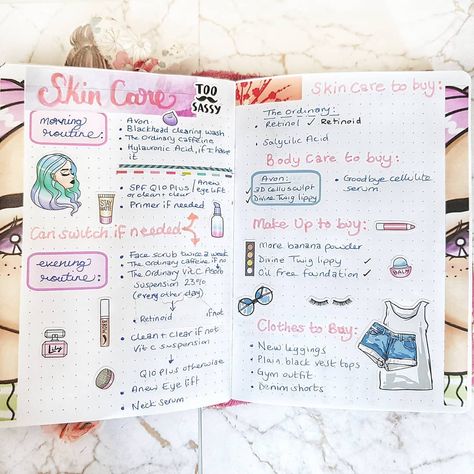 Skin Care
TOO
SASSY
morning
routine:
Avon
Blackhead clearing wash
The Ordinary caffeine
Hylauronic Acid, if I have
it
SPF Q10 Plus / Anew
or clean + clear eye lift
Primer if needed
STAY
Can switch if needed
evening
routine:
Face scrub twice a week
The Ordinary caffeine if no
The Ordinary Vit C
suspension
23%
(every other day)
Retinoid if not
Clean + clear if not
Vit C suspension
Q10 Plus otherwise
Anew Eye lift
Neck serum
Skin Care to buy:
The Ordinary:
Retinol ✓ Retinoid
Salycilic Acid
Body Care to buy:
Avon:
3D Cellusculpt
Divine Twig lippy
Goodbye cellulite
serum
Make Up to buy:
More banana powder
Divine Twig lippy ✓
Oil free foundation ✓
BALM
Clothes to Buy:
New leggings
Plain black vest tops
Gym outfit
Denim shorts